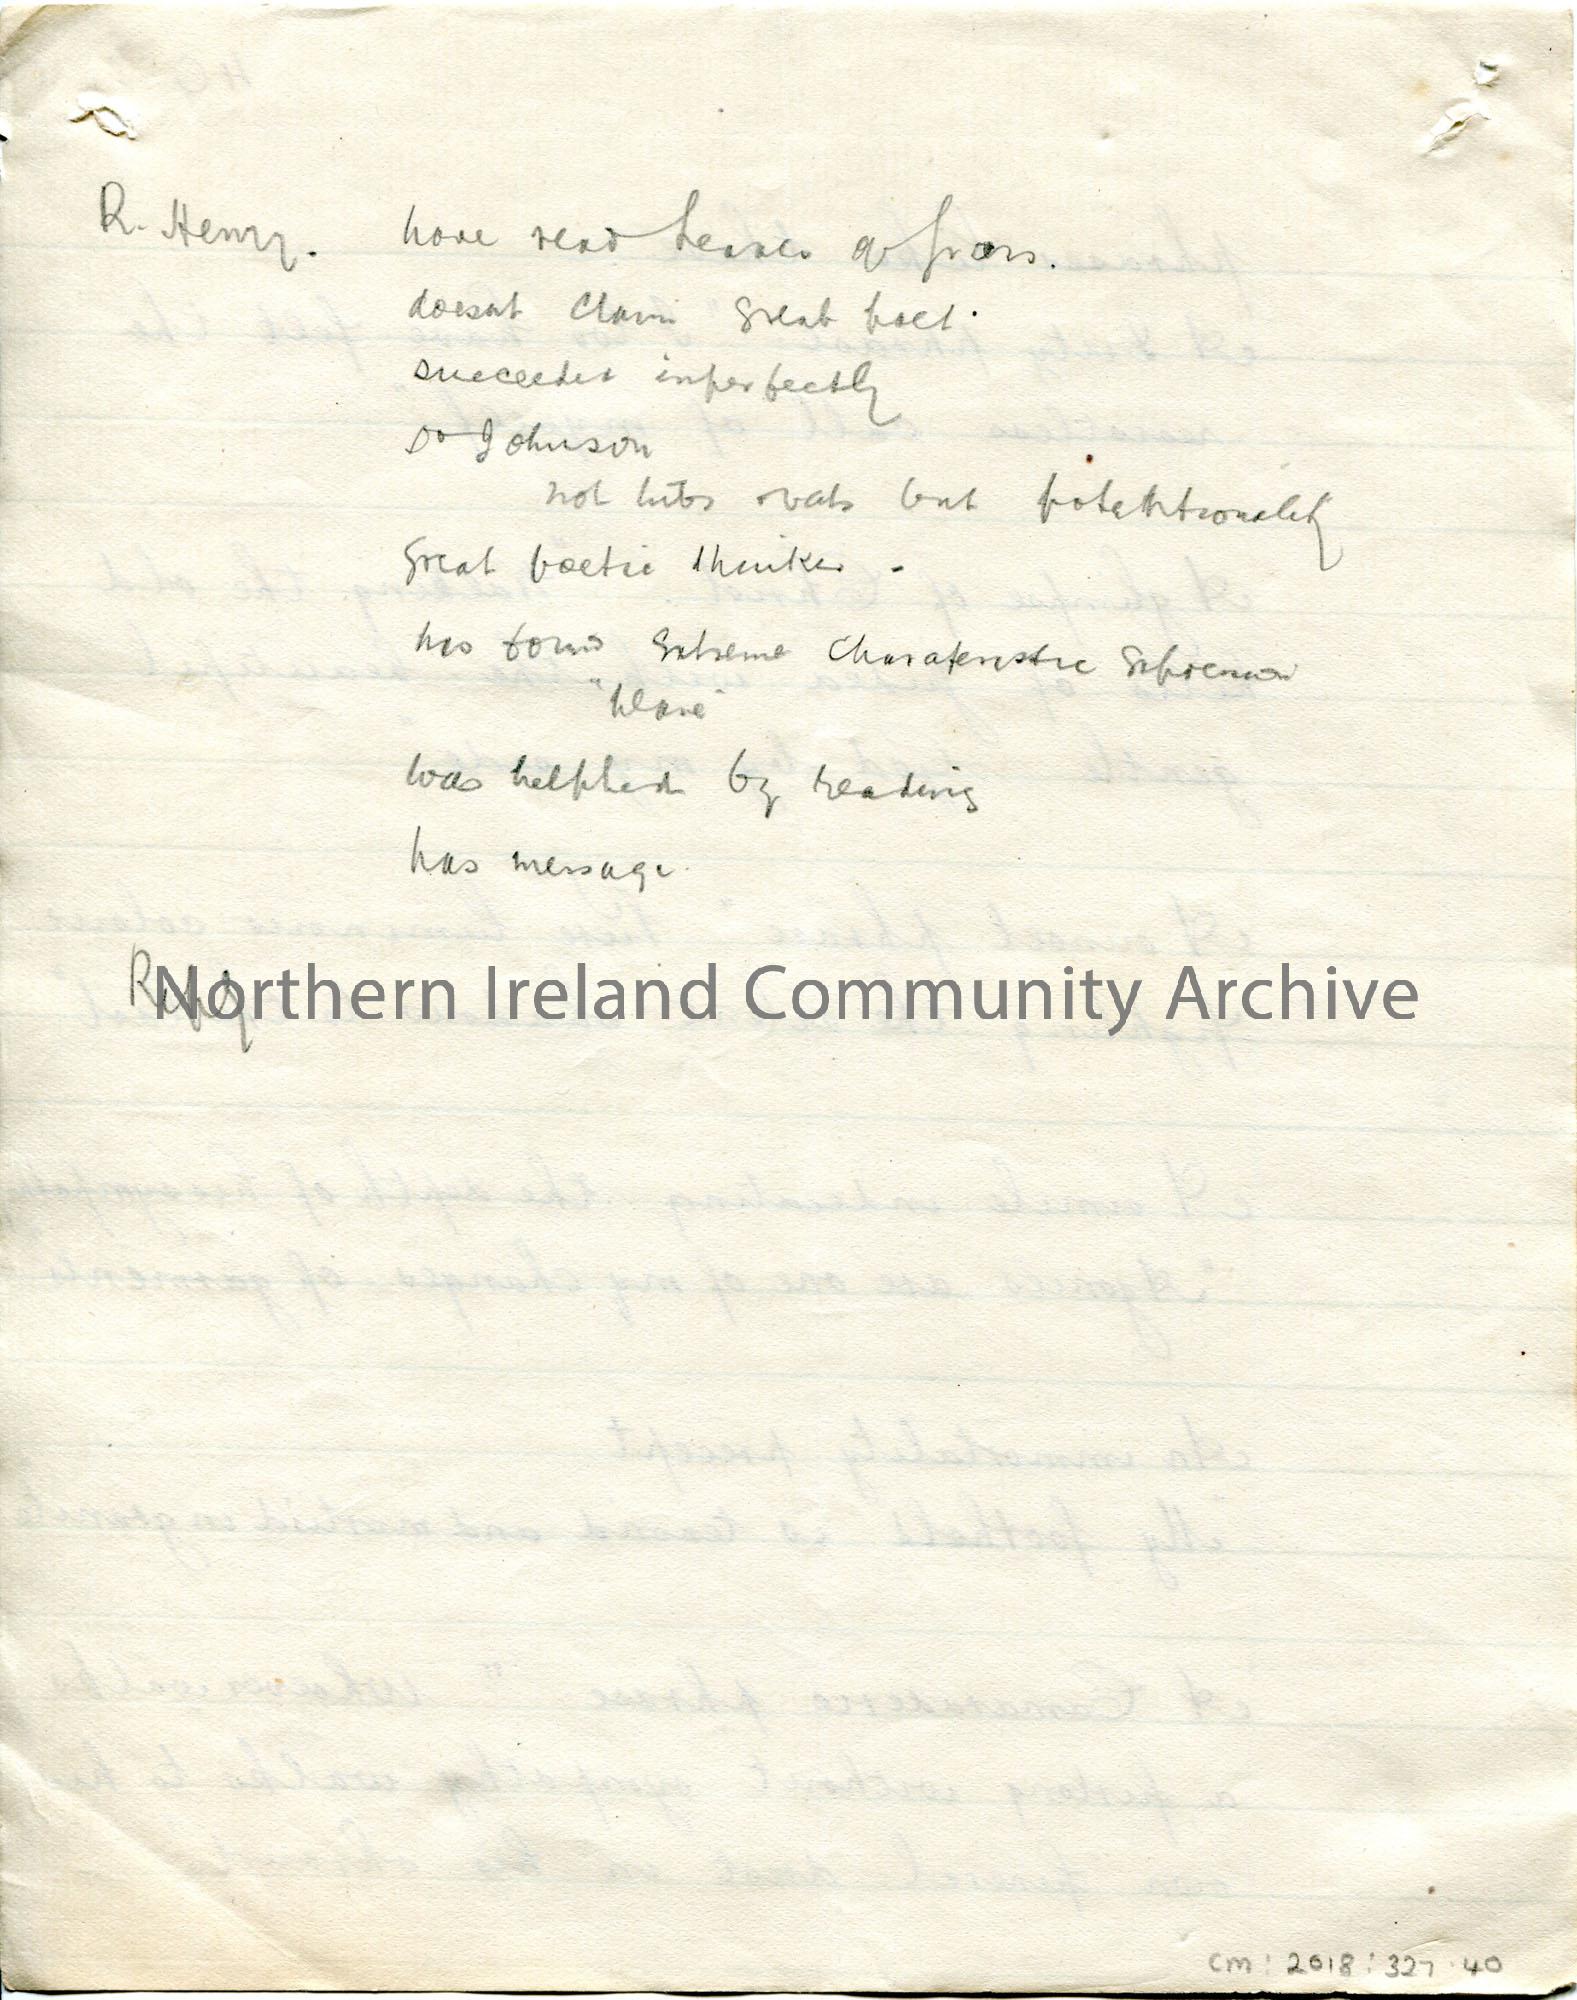 R. Henry. have read Leaves of Grass.
doesnt claim great poet.
succeeded imperfectly
Dr Johnson
not but potentionality
Great poetic thinker.
has found extreme characteristic expression
was helphed by reading
has message.
Reply
Northern Ireland Community Archive
CM: 2018: 327.40